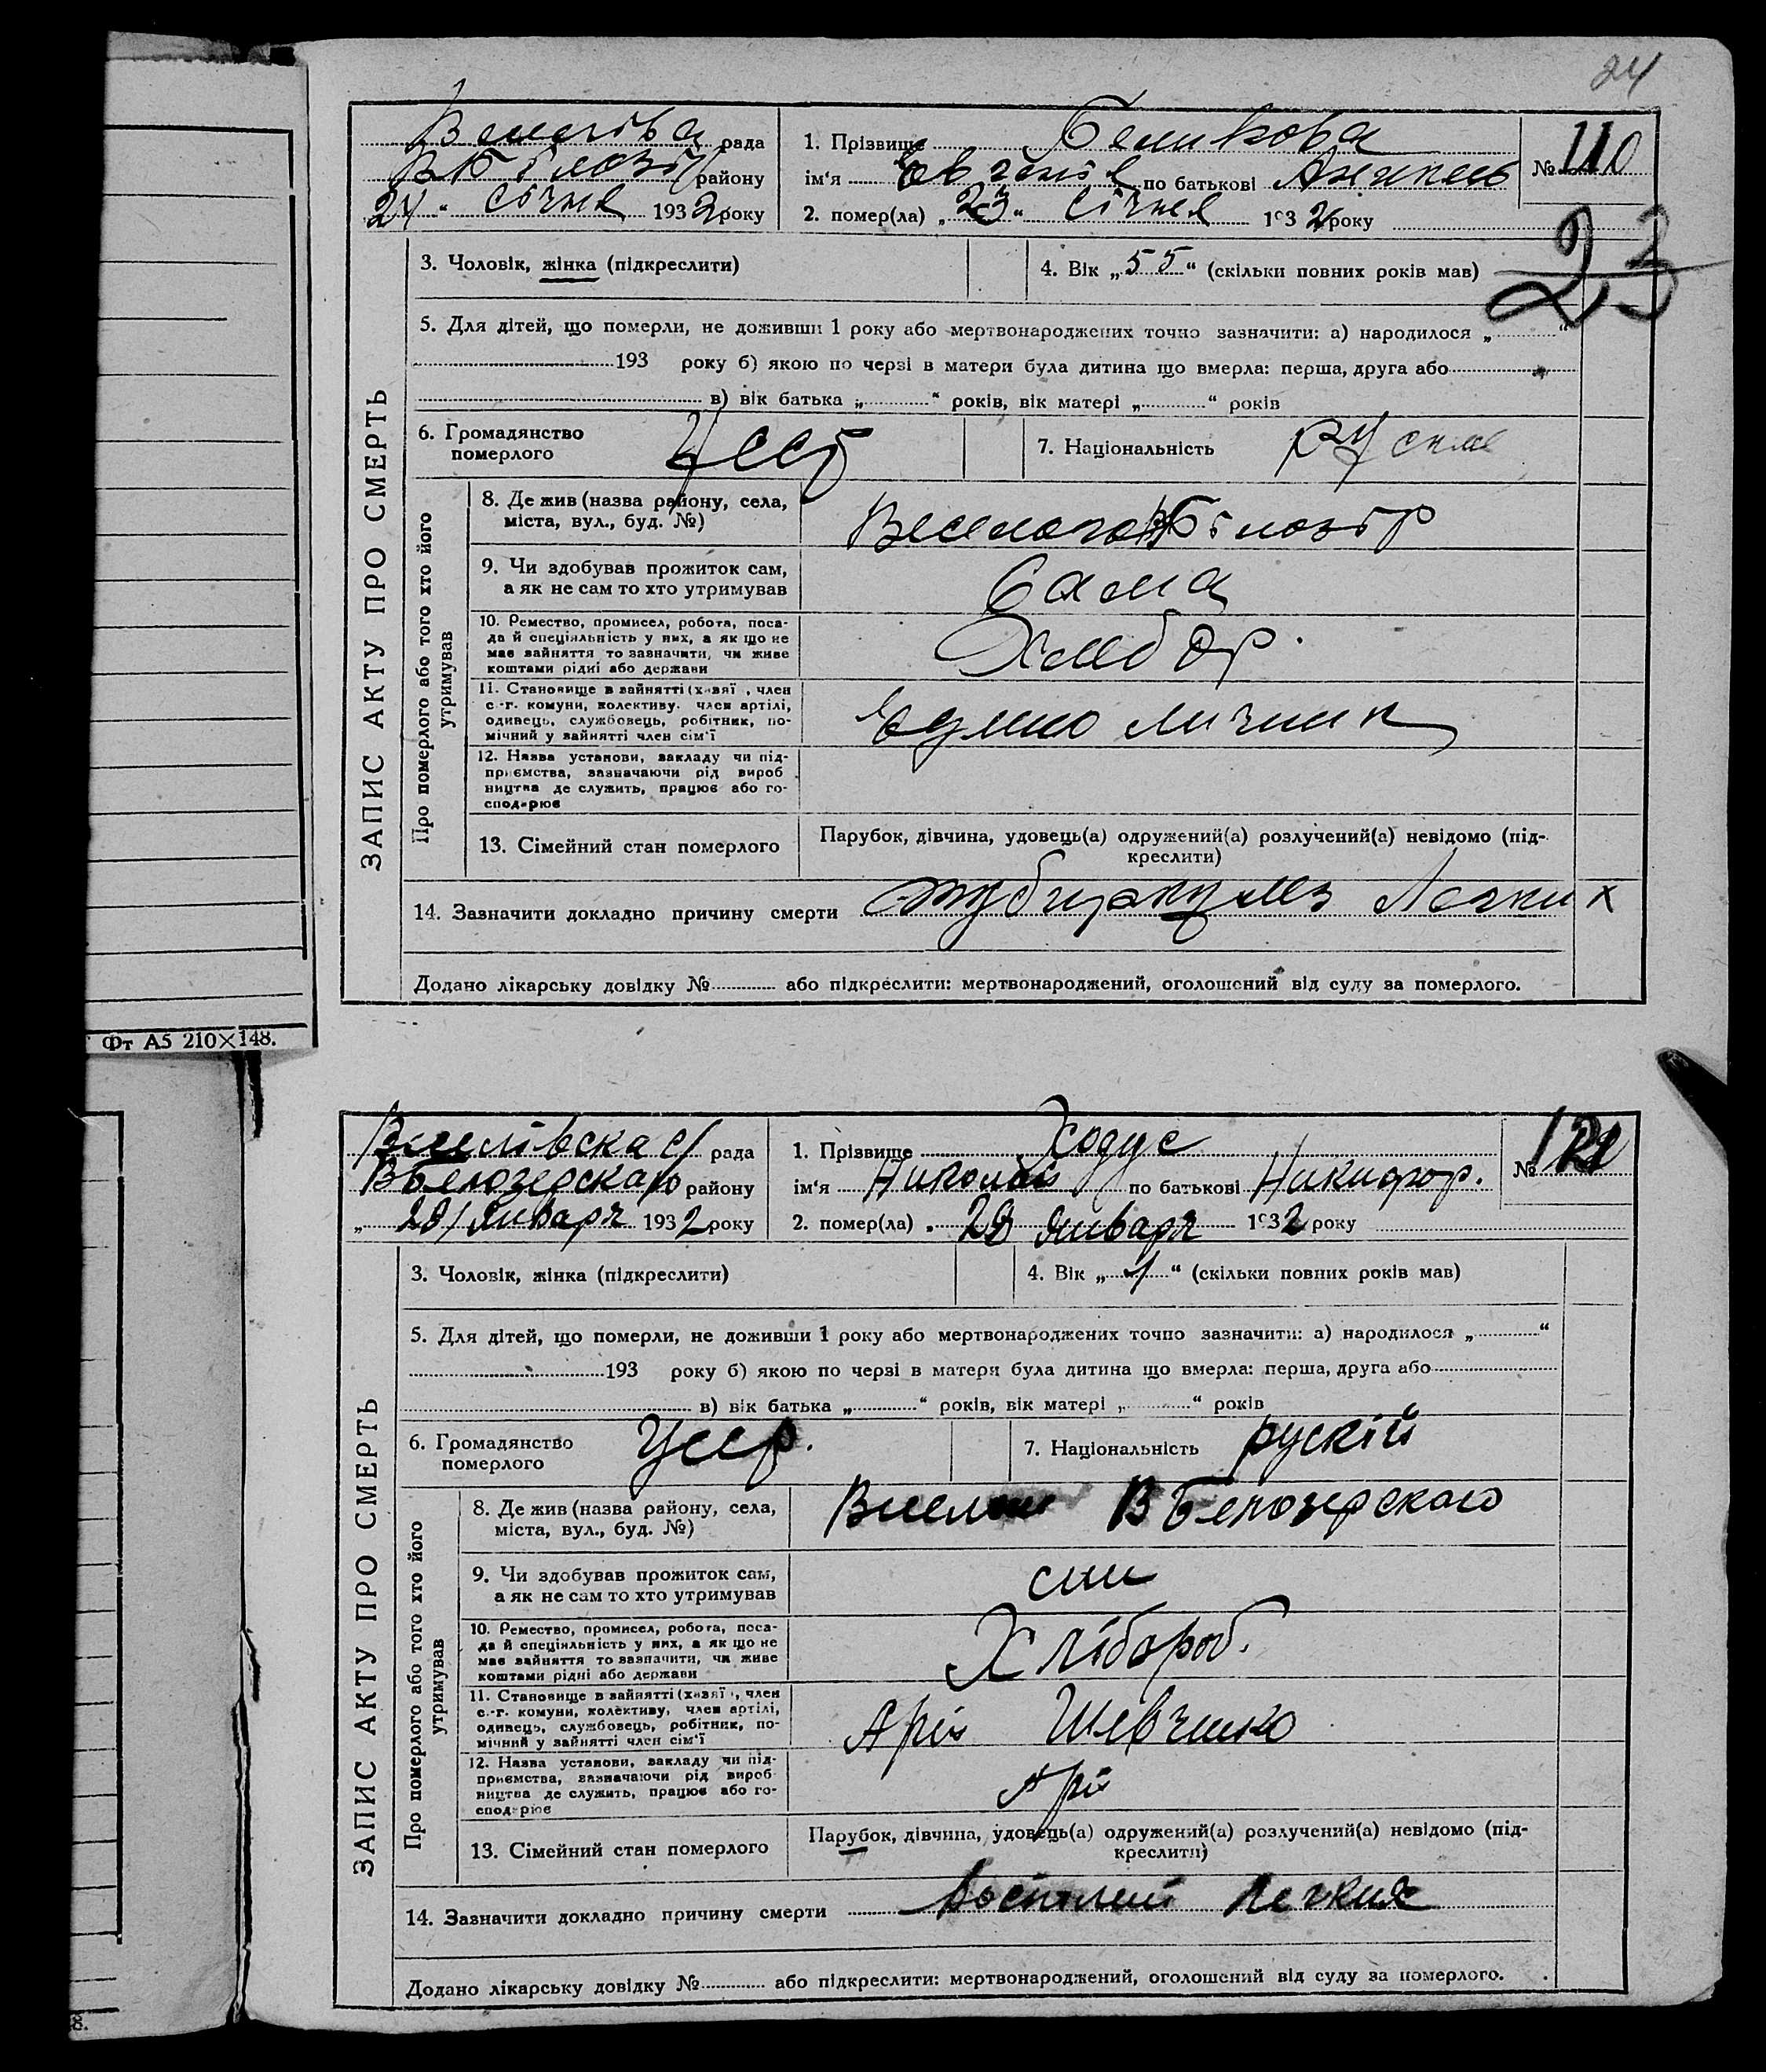 24
рада
району
24 " січня 1932 року
1. Прізвище Беликова
ім'я Євгенія по батькові
2. помер(ла) „23" січня 1932 року
№ 110
23
ЗАПИС АКТУ ПРО СМЕРТЬ
3. Чоловік, жінка (підкреслити)
4. Вік „55" (скільки повних років мав)
5. Для дітей, що померли, не доживши 1 року або мертвонароджених точно зазначити: а) народилося „ "
193 року б) якою по черзі в матери була дитина що вмерла: перша, друга або
в) вік батька „ " років, вік матері „ " років
6. Громадянство
померлого
7. Національність
Про померлого або того хто його
утримував
8. Де жив (назва району, села,
міста, вул., буд. №)
9. Чи здобував прожиток сам,
а як не сам то хто утримував
Сама
10. Ремество, промисел, робота, поса-
да й спеціяльність у них, а як що не
має зайняття то зазначити, чи живе
коштами рідні або держави
Хлебор.
11. Становище в зайнятті (хазяї , член
с.-г. комуни, колективу, член артілі,
одинець, службовець, робітник, по-
мічний у зайнятті член сім'ї
12. Назва установи, закладу чи під-
приємства, зазначаючи рід вироб
ництва де служить, працює або го-
сподарює
13. Сімейний стан померлого
Парубок, дівчина, удовець(а) одружений(а) розлучений(а) невідомо (під-
креслити)
14. Зазначити докладно причину смерти Легких
Додано лікарську довідку № або підкреслити: мертвонароджений, оголошений від суду за померлого.
Фт А5 210×148.
рада
ВБелозерскаго району
„ 28 / Января 1932 року
1. Прізвище Ходус
ім'я Николай по батькові Никифор.
2. помер(ла) „ 28 Января 1932 року
№
ЗАПИС АКТУ ПРО СМЕРТЬ
3. Чоловік, жінка (підкреслити)
4. Вік „1" (скільки повних років мав)
5. Для дітей, що померли, не доживши 1 року або мертвонароджених точно зазначити: а) народилося „ "
193 року б) якою по черзі в матери була дитина що вмерла: перша, друга або
в) вік батька „ " років, вік матері „ " років
6. Громадянство
померлого
Усср.
7. Національність рускій
Про померлого або того хто його
утримував
8. Де жив (назва району, села,
міста, вул., буд. №)
ВБелозерскаго
9. Чи здобував прожиток сам,
а як не сам то хто утримував
син
10. Ремество, промисел, робота, поса-
да й спеціяльність у них, а як що не
має зайняття то зазначити, чи живе
коштами рідні або держави
Хлібороб.
11. Становище в зайнятті (хазяї , член
с.-г. комуни, колективу, член артілі,
одинець, службовець, робітник, по-
мічний у зайнятті член сім'ї
Шевченко
12. Назва установи, закладу чи під-
приємства, зазначаючи рід вироб-
ництва де служить, працює або го-
сподарює
13. Сімейний стан померлого
Парубок, дівчина, удовець(а) одружений(а) розлучений(а) невідомо (під-
креслити)
14. Зазначити докладно причину смерти Легких
Додано лікарську довідку № або підкреслити: мертвонароджений, оголошений від суду за померлого.
8.